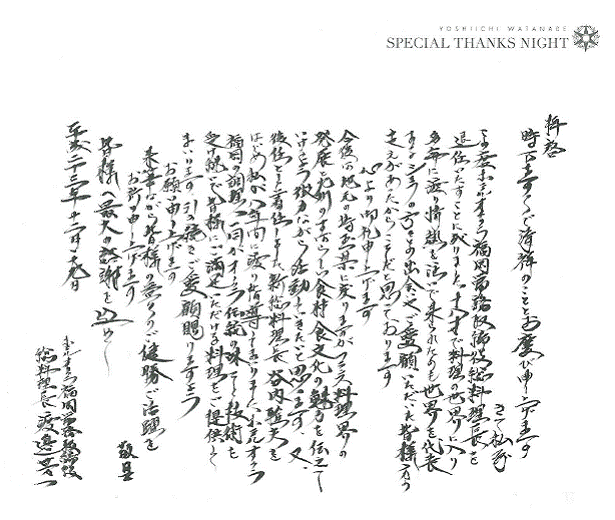 YOSHIICHI WATANABE
SPECIAL THANKS NIGHT
拝啓
時下ますますご清祥のこととお慶び申し上げます
さて私事
この度ホテルオークラ福岡常務取締役総料理長を
退任いたすことに成りました。十八才で料理の世界に入り
多年に渡り情熱を注いで来られたのも世界を代表
するシェフの方々との出会いとご愛顧いただいた皆様方の
支えがあったからこそだと思っております
心より御礼申し上げます
今後は地元の埼玉県に戻りますがフランス料理界の
発展と九州のすばらしい食材食文化の魅力を伝えて
いけるよう微力ながら活動していきたいと思います。又、
後任として着任しました新総料理長谷内
はじめ私が八年間に渡り指導してまいりましたホテルオークラ
福岡の調理人一同がオークラ伝統の味と技術を
受け継ぎ皆様にご満足いただける料理をご提供して
まいります引き続きご愛顧賜りますよう
お願い申し上げます
末筆ながら皆様の益々のご健勝ご活躍を
お祈り申し上げます
皆様へ最大の感謝を込めて
敬具
平成二十三年十二月十九日
ホテルオークラ福岡常務取締役
総料理長 渡邉